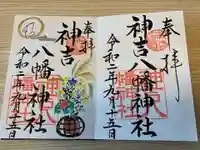 奉拝
神吉八幡神社
令和二年九月十二日
奉拝
神吉八幡神社
令和二年九月十二日